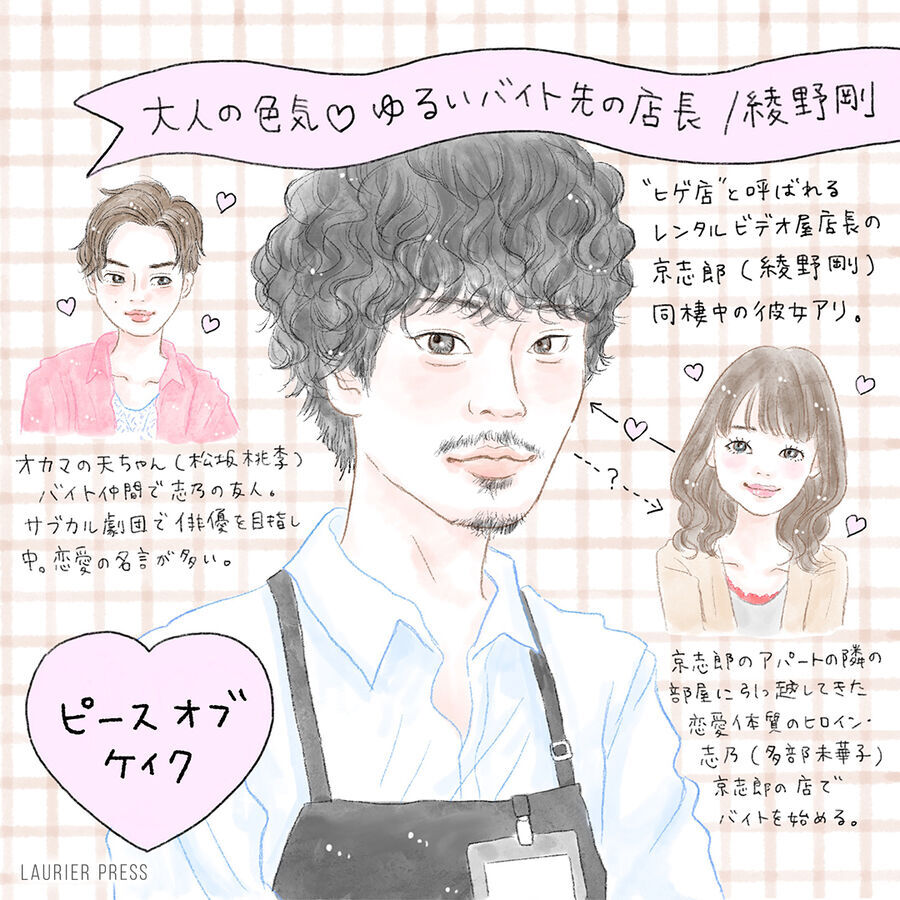 大人の色気♡ ゆるいバイト先の店長 /綾野剛
"ヒゲ店"と呼ばれる
レンタルビデオ屋店長の
京志郎(綾野剛)
同棲中の彼女アリ。
オカマの天ちゃん(松坂桃李)
バイト仲間で志乃の友人。
サブカル劇団で俳優を目指し
中。恋愛の名言が多い。
?
京志郎のアパートの隣の
部屋に引っ越してきた
恋愛体質のヒロイン・
志乃(多部未華子)
京志郎の店で
バイトを始める。
ピース オブ
ケイク
LAURIER PRESS